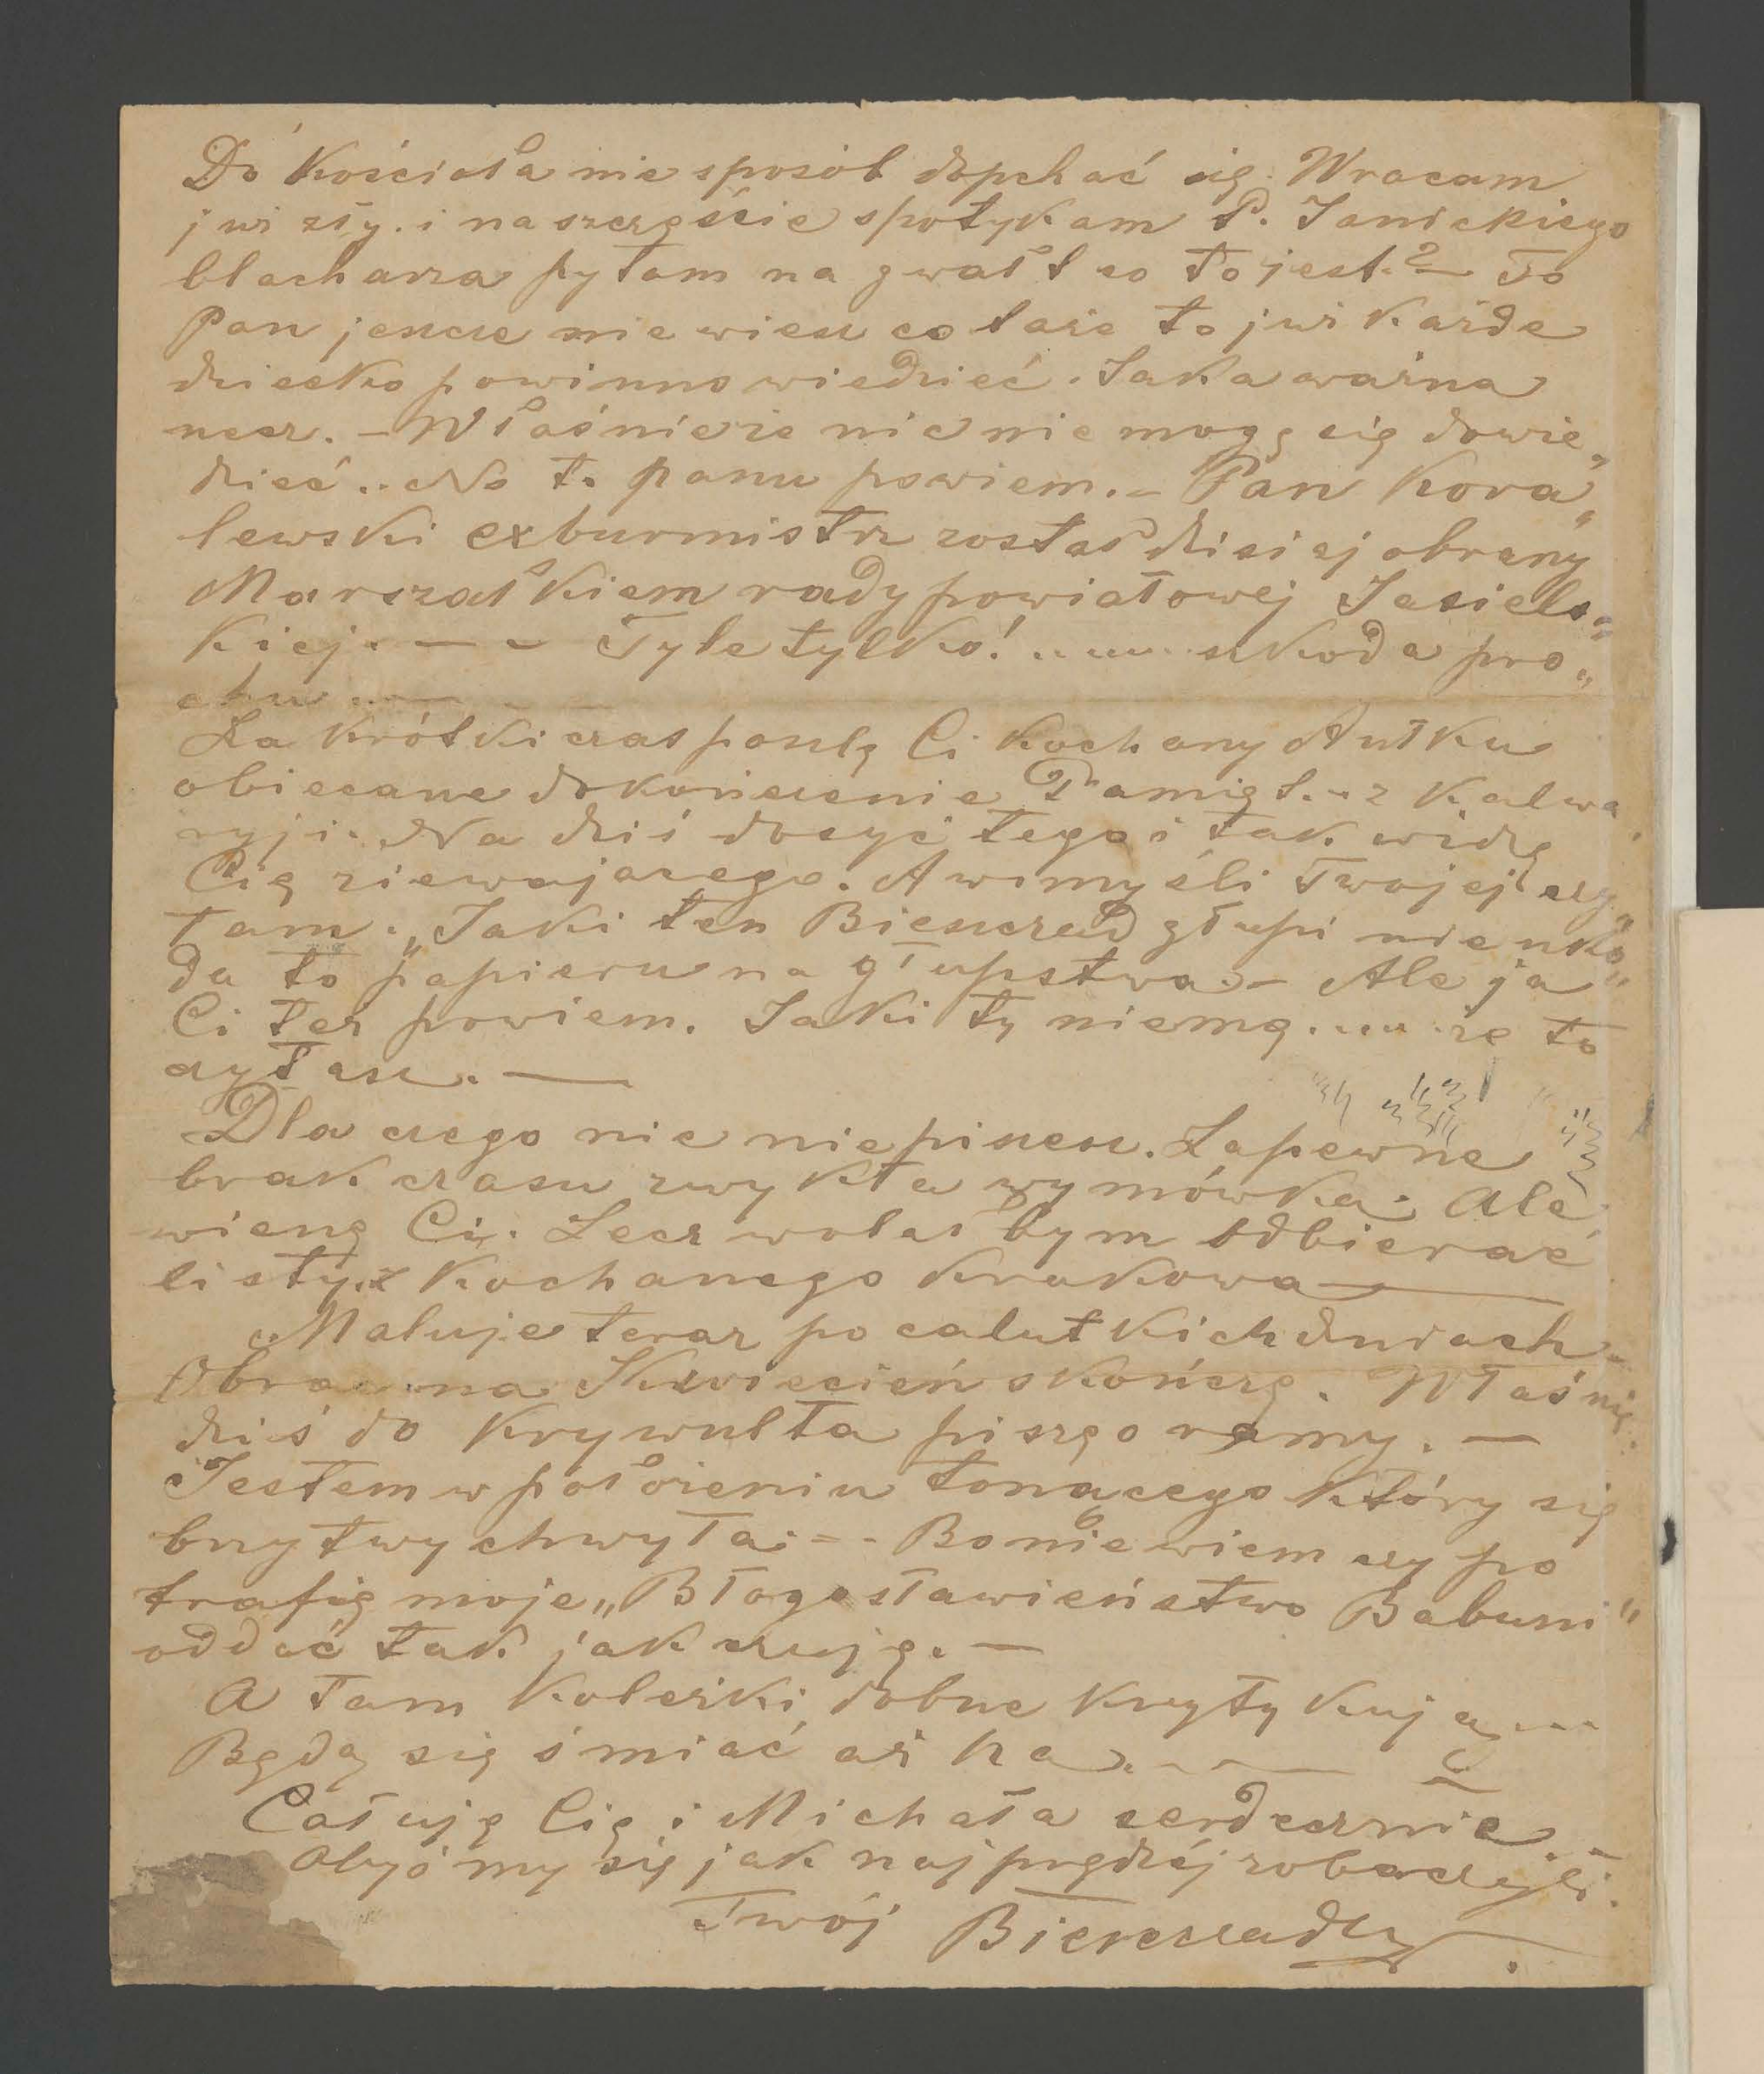 Do kościoła nie sposób dopchać się. Wracam
już zły. i na szczęście spotykam P. Janickiego
blacharza pytam na gwałt co to jest.? — To
Pan jeszcze nie wiesz co także to już każde
dziecko powinno wiedzieć. Taka ważna
rzecz. — Właśnie że nic nie mogę się dowie„
dzieć.. No to panu powiem. — Pan Kora„
lewski exburmistrz został dzisiej obrany
Marszałkiem rady powiatowej Jasiels„
kiej. — — Tyle tylko! ........ szkoda pro„
chu .....
Za krótki czas poszlę Ci kochany Antku
obiecane dokończenie Pamięt... z Kalwa
ryji. Na dziś dosyć tego i tak widzę
Cię ziewającego. A w myśli Twojej czy„
tam. „Jaki ten Bieszczad głupi nie szko„
da to papieru na głupstwa. — Ale ja
Ci też powiem. Jaki ty niemą...... że to
czytasz. —
Dla czego nic niepiszesz. Zapewne
brak czasu zwykła wymówka. Ale
wierzę Ci. Lecz wolałbym odbierać
listy z kochanego Krakowa —
Maluje teraz po calutkich dniach —
Obraz na Kwiecień skończę. Właśnie
dziś do Krywulta piszę o ramy. —
Jestem w położeniu tonącego który się
brzytwy chwyta. — Bo nie wiem czy po
trafię moje „Błogosławieństwo Babuni"
oddać tak jak czuję. —
A tam koleżki dobrze krytykują ...
Będą się śmiać aż ha....
Całuję Cię i Michała serdecznie. —
Obyśmy się jak najprędzéj zobaczyli.
Twój Bieszczad